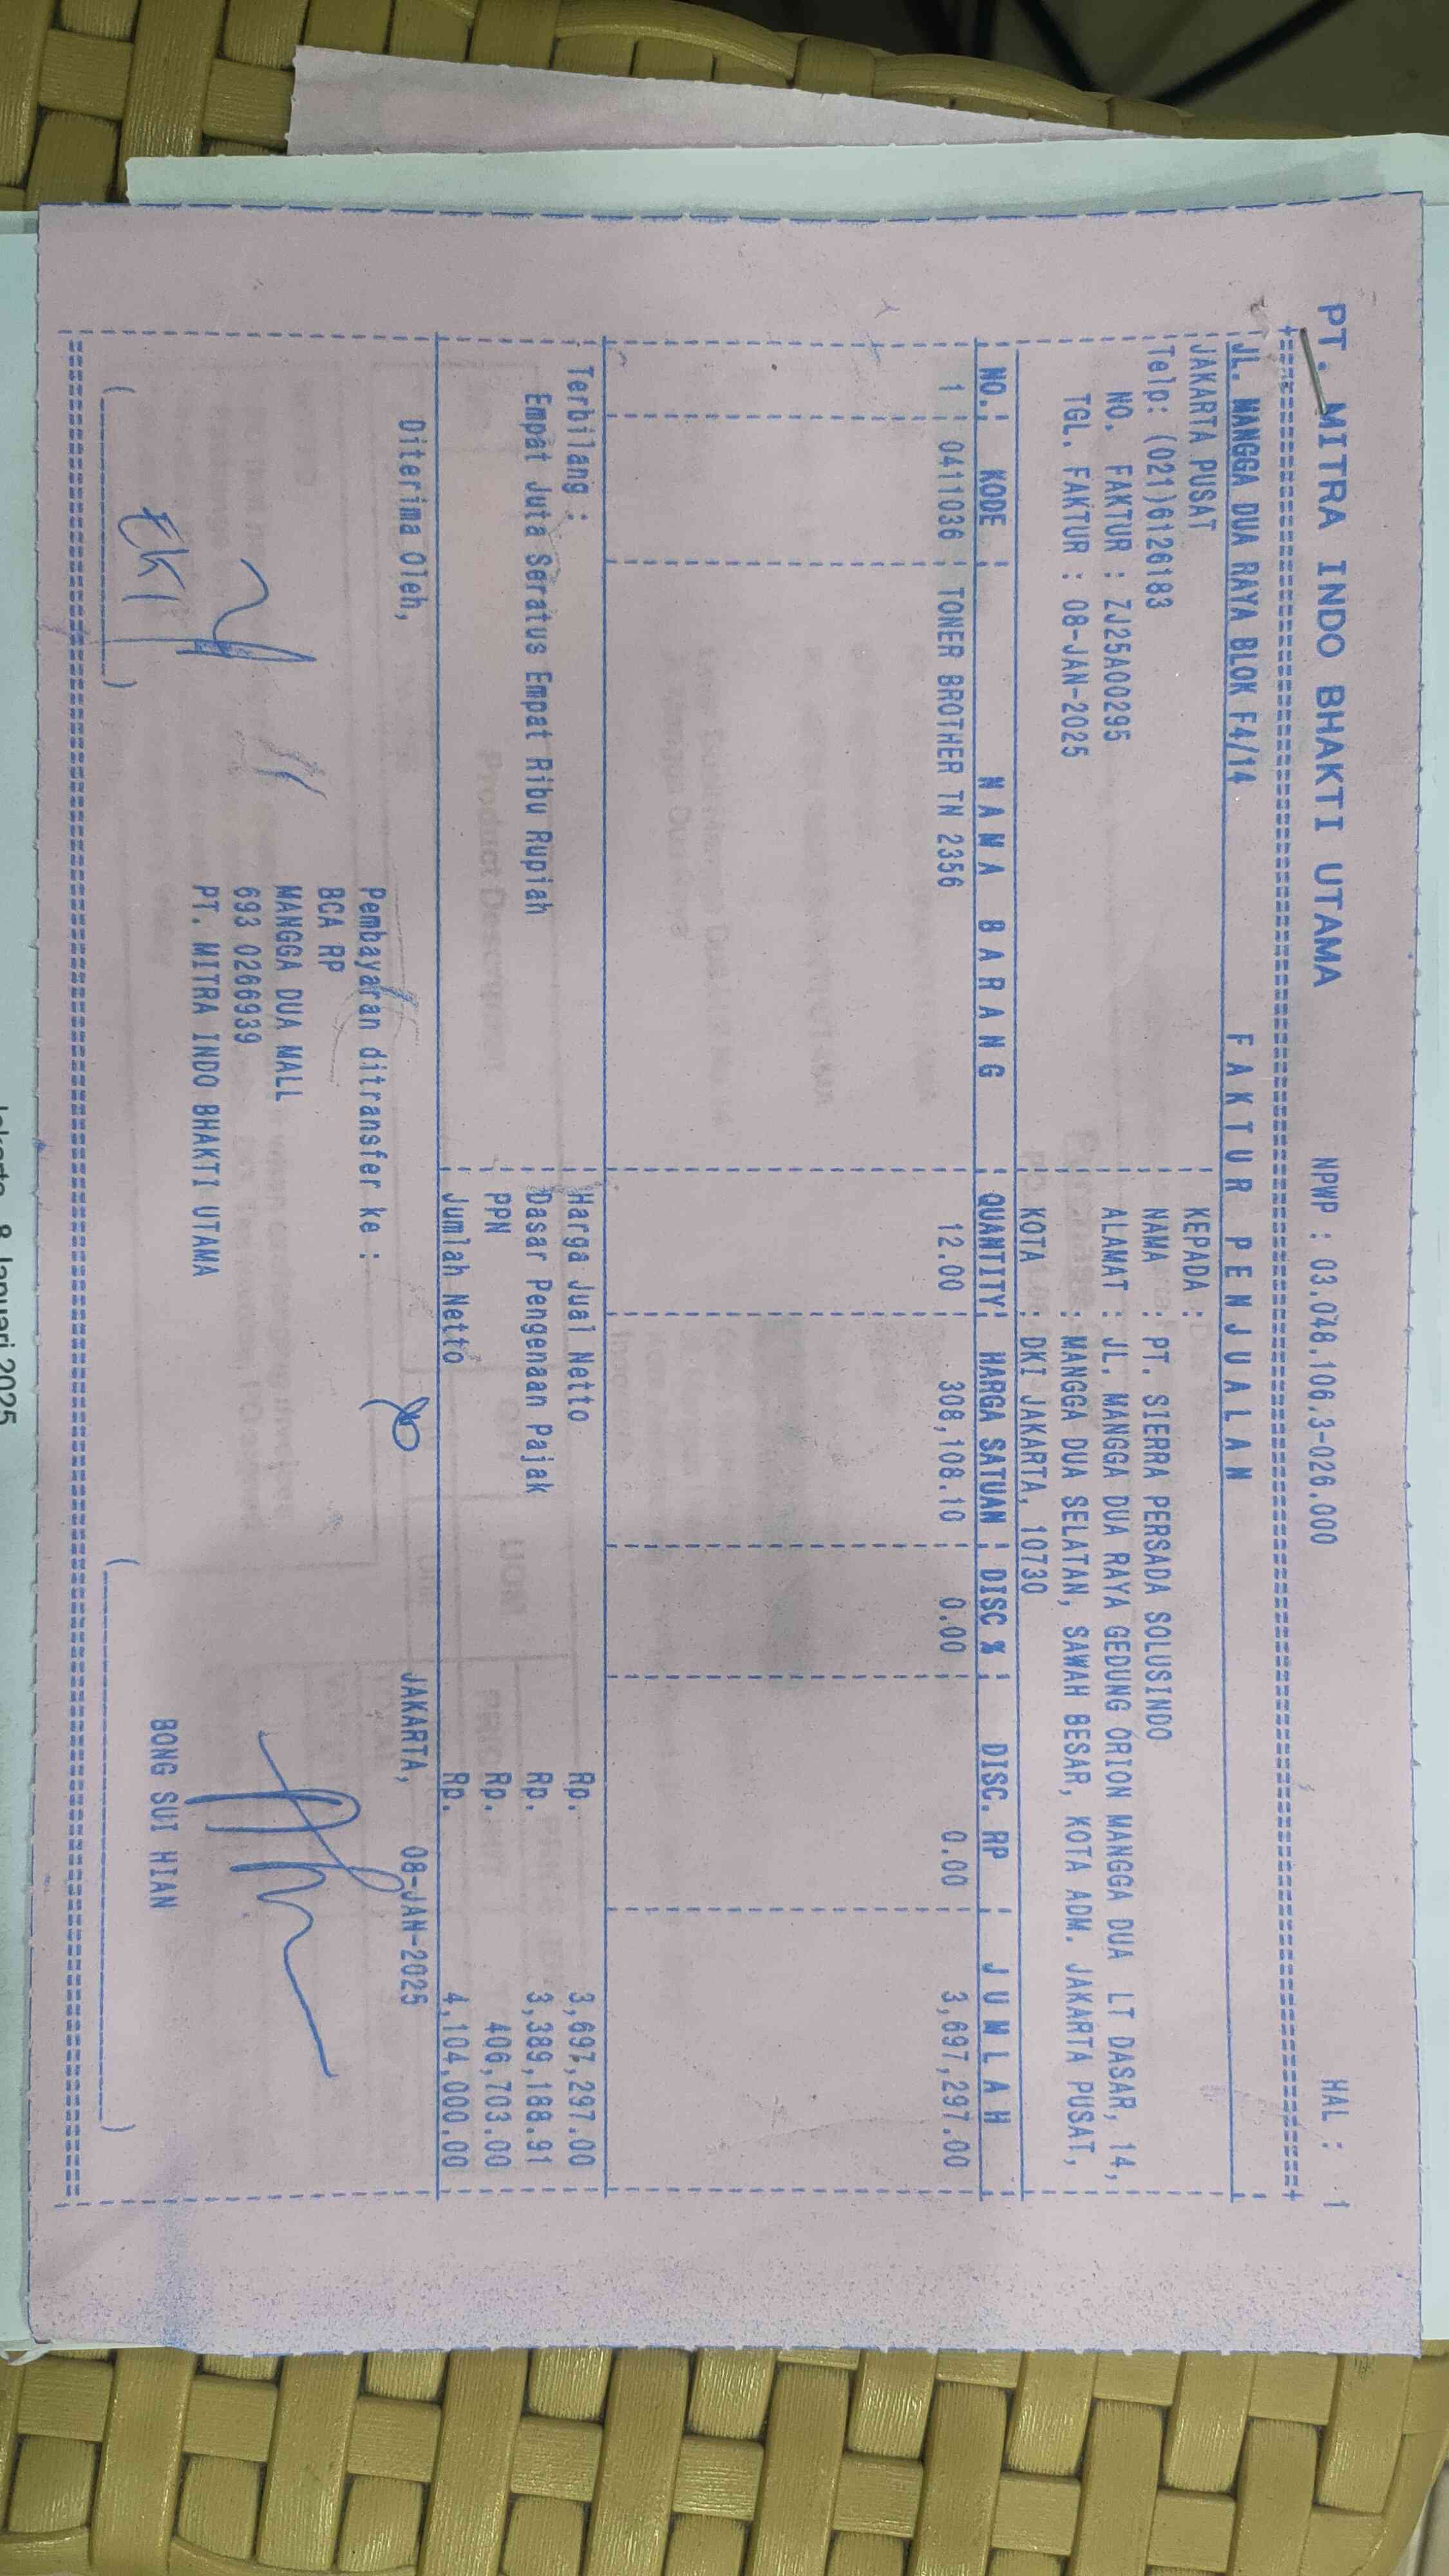 PT. MITRA INDO BHAKTI UTAMA NPWP : 03.048.106.3-026.000 HAL : 1
JL. MANGGA DUA RAYA BLOK F4/14 F A K T U R P E N J U A L A N
JAKARTA PUSAT KEPADA :
Telp: (021)6126183 NAMA : PT. SIERRA PERSADA SOLUSINDO
NO. FAKTUR : ZJ25A00295 ALAMAT : JL. MANGGA DUA RAYA GEDUNG ORION MANGGA DUA LT DASAR, 14,
TGL. FAKTUR : 08-JAN-2025 : MANGGA DUA SELATAN, SAWAH BESAR, KOTA ADM. JAKARTA PUSAT,
KOTA : DKI JAKARTA, 10730
NO. KODE N A M A B A R A N G QUANTITY HARGA SATUAN DISC % DISC. RP J U M L A H
1 0411036 TONER BROTHER TN 2356 12.00 308,108.10 0.00 0.00 3,697,297.00
Terbilang : Harga Jual Netto Rp. 3,697,297.00
Empat Juta Seratus Empat Ribu Rupiah Dasar Pengenaan Pajak Rp. 3,389,188.91
PPN Rp. 406,703.00
Jumlah Netto Rp. 4,104,000.00
Diterima Oleh, JAKARTA, 08-JAN-2025
Pembayaran ditransfer ke :
BCA RP
MANGGA DUA MALL
693 0266939
PT. MITRA INDO BHAKTI UTAMA
EKI
BONG SUI HIAN
8 Januari 2025